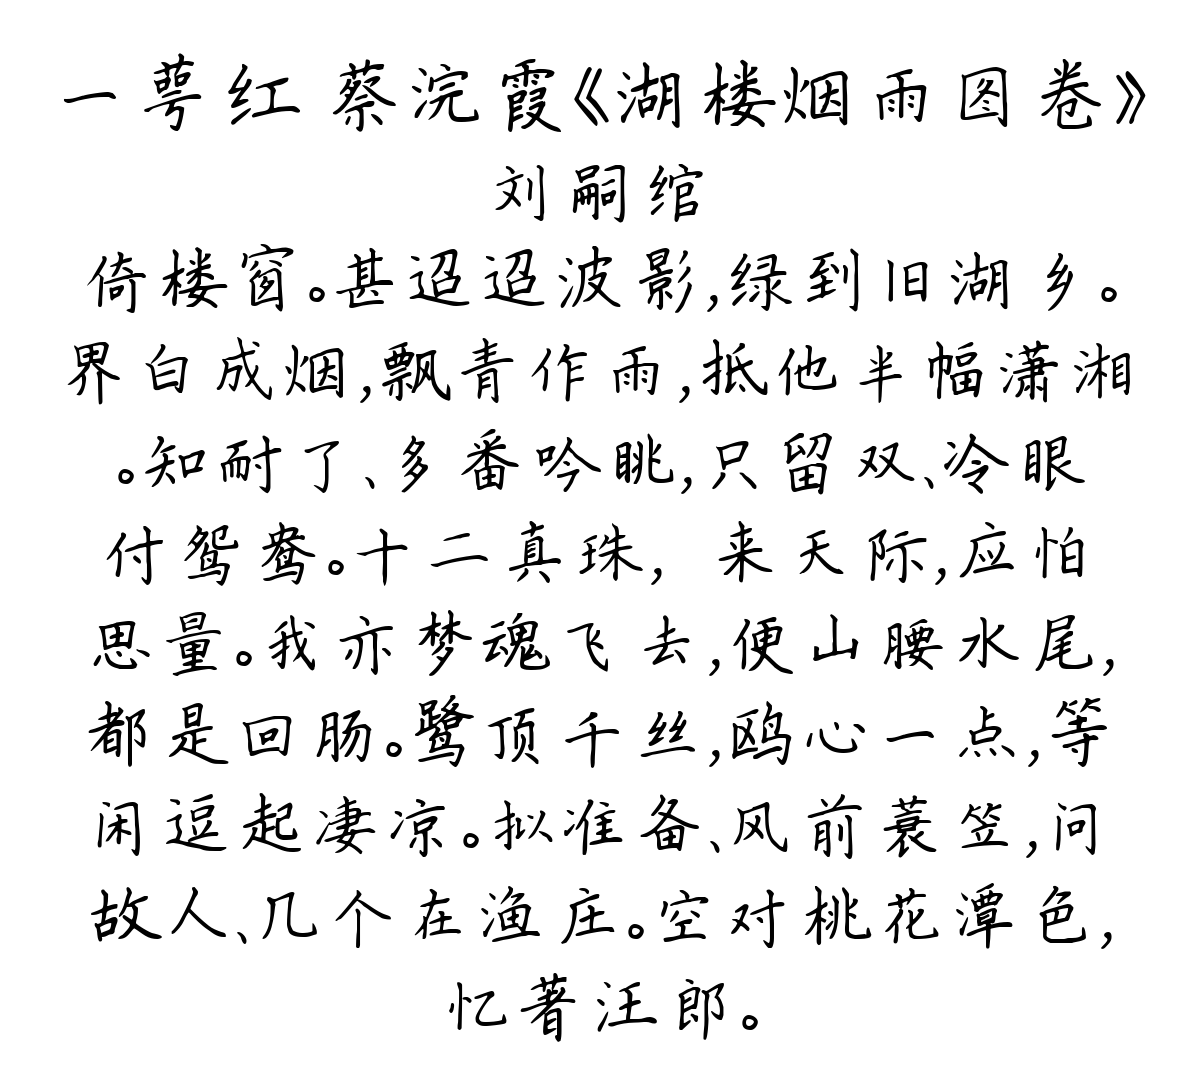 一萼红 蔡浣霞《湖楼烟雨图卷》
刘嗣绾
倚楼窗。甚迢迢波影,绿到旧湖乡。
界白成烟,飘青作雨,抵他半幅潇湘
。知耐了、多番吟眺,只留双、冷眼
付鸳鸯。十二真珠，来天际,应怕
思量。我亦梦魂飞去,便山腰水尾,
都是回肠。鹭顶千丝,鸥心一点,等
闲逗起凄凉。拟准备、风前蓑笠,问
故人、几个在渔庄。空对桃花潭色,
忆著汪郎。